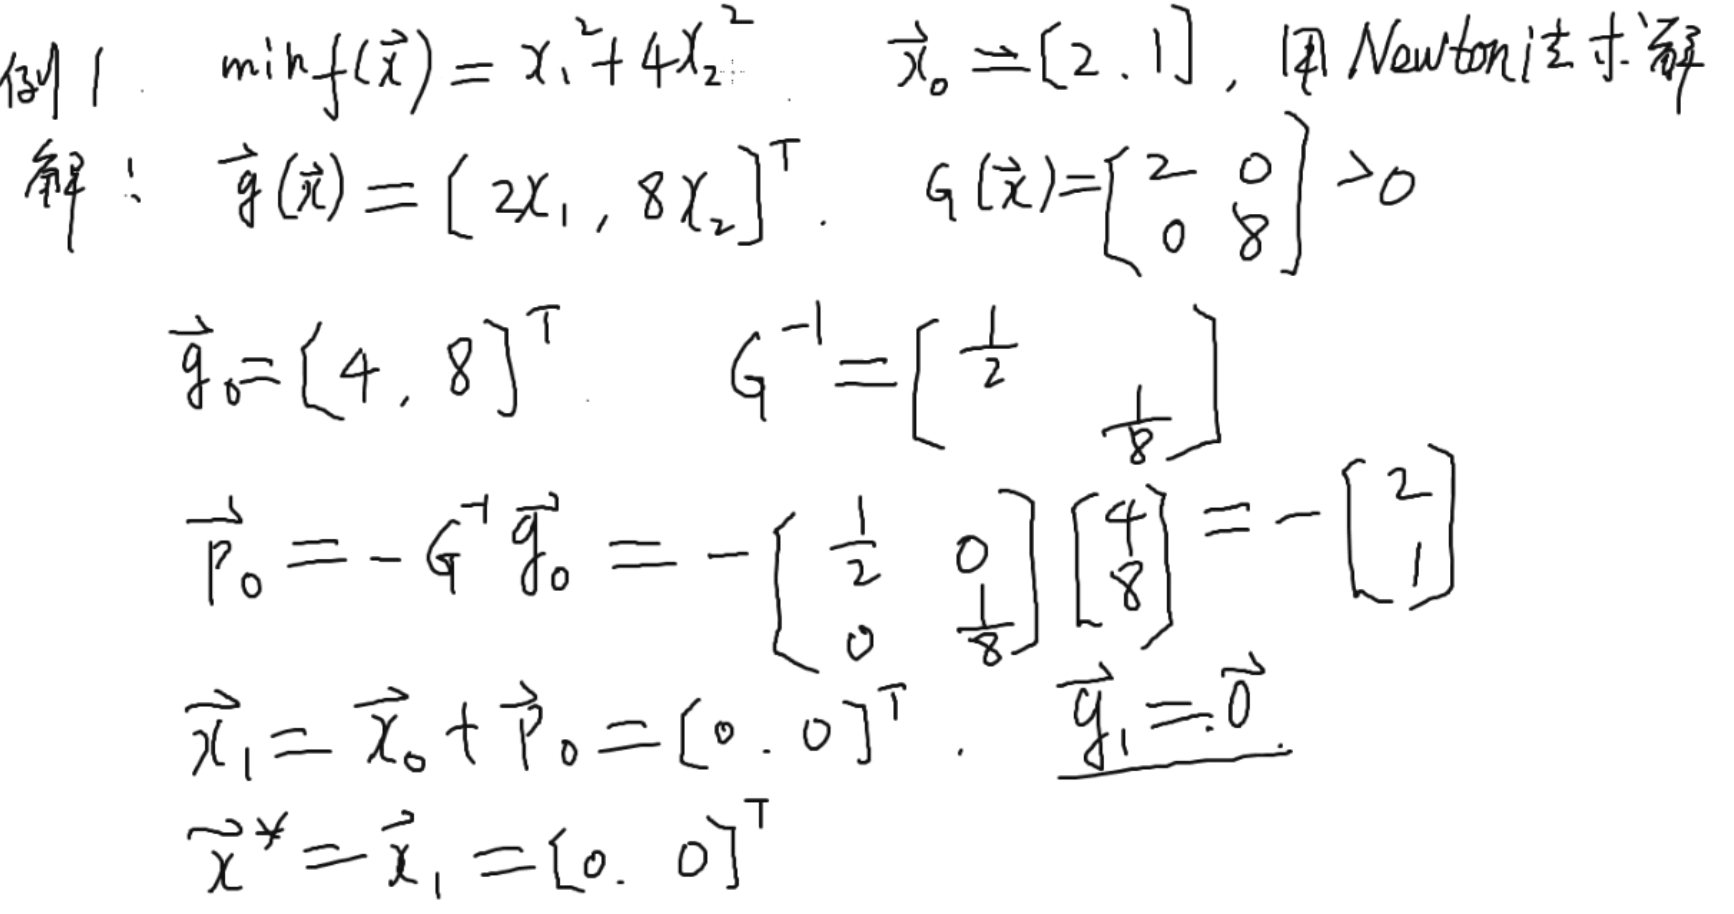 例1 min f(x⃗) = x₁² + 4x₂² x⃗₀ = [2, 1], 用Newton法求解
解: g⃗(x⃗) = [2x₁, 8x₂]ᵀ. G(x⃗) = [2 0; 0 8] > 0
g⃗₀ = [4, 8]ᵀ G⁻¹ = [1/2 ; 1/8]
p⃗₀ = -G⁻¹g⃗₀ = -[1/2 0; 0 1/8][4; 8] = -[2; 1]
x⃗₁ = x⃗₀ + p⃗₀ = [0. 0]ᵀ. g⃗₁ = 0⃗.
x⃗* = x⃗₁ = [0. 0]ᵀ